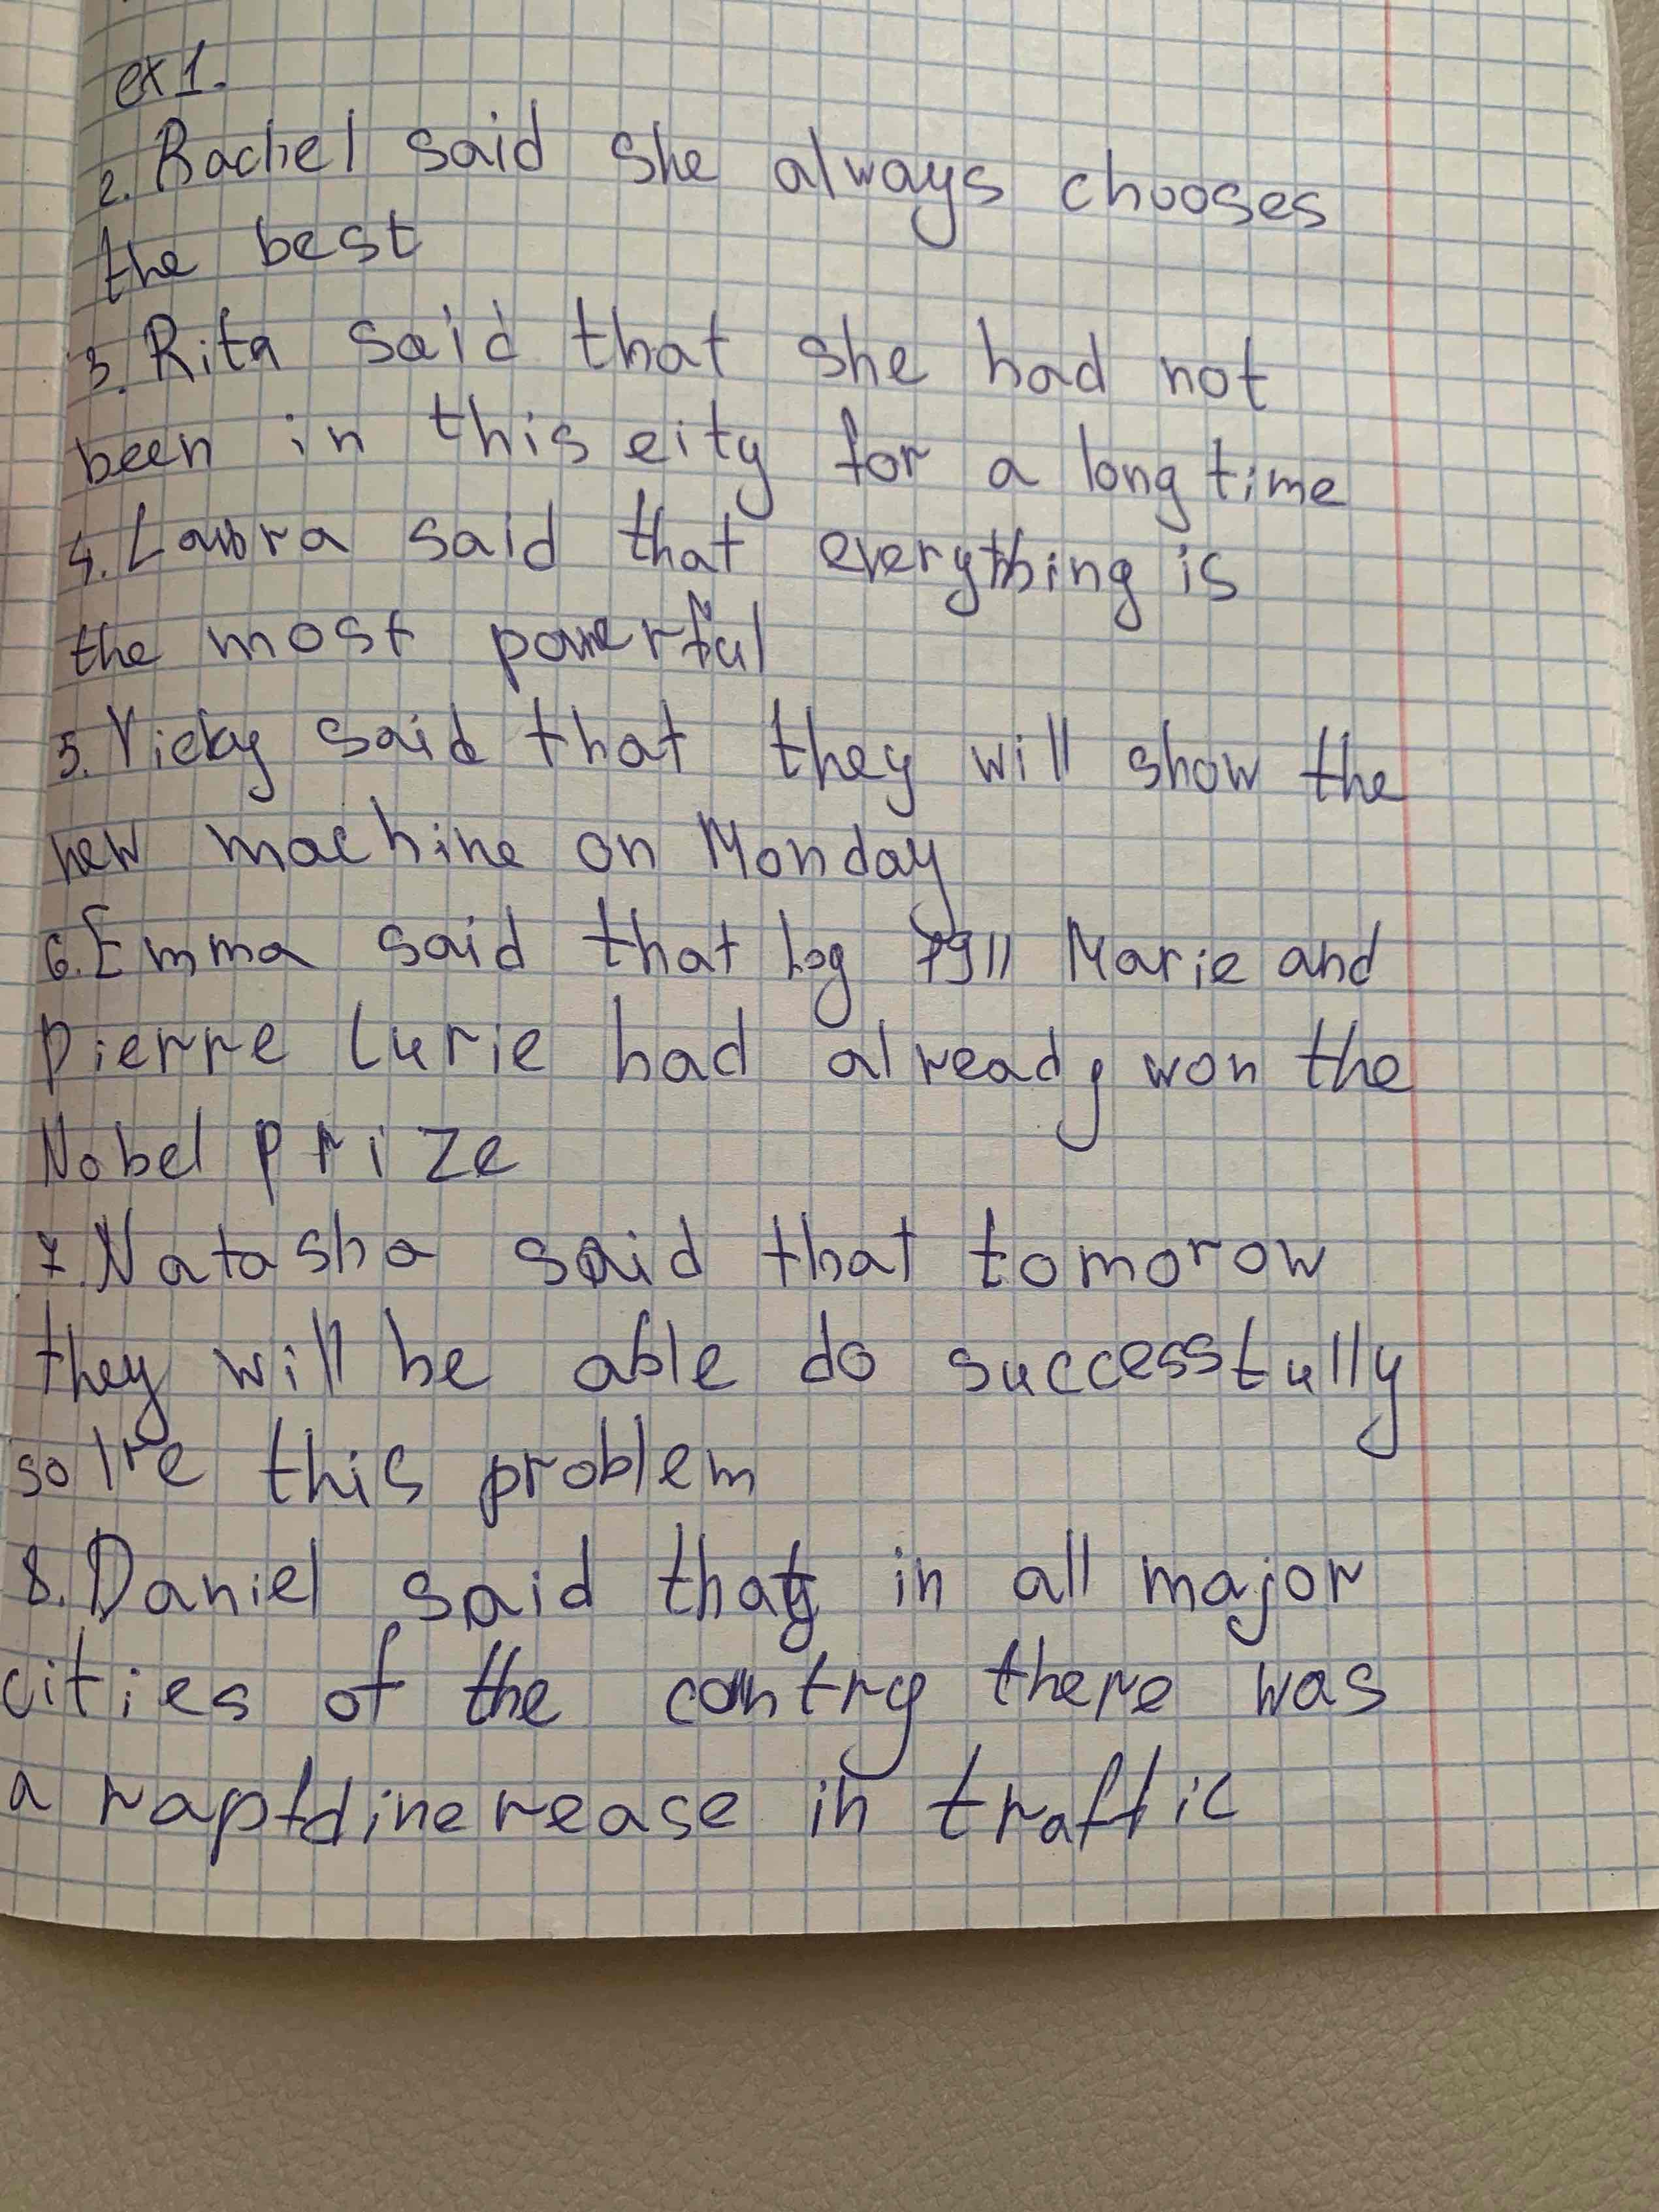 ex1.
2. Rachel said she always chooses
the best
3. Rita said that she had not
been in this eity for a long time
4. Laura said that everything is
the most powerful
5. Vicky said that they will show the
new machine on Monday
6. Emma said that by 1911 Marie and
Pierre Curie had already won the
Nobel prize
7. Natasha said that tomorow
they will be able do successfully
solve this problem
8. Daniel said that in all major
cities of the contry there was
a rapid increase in traffic